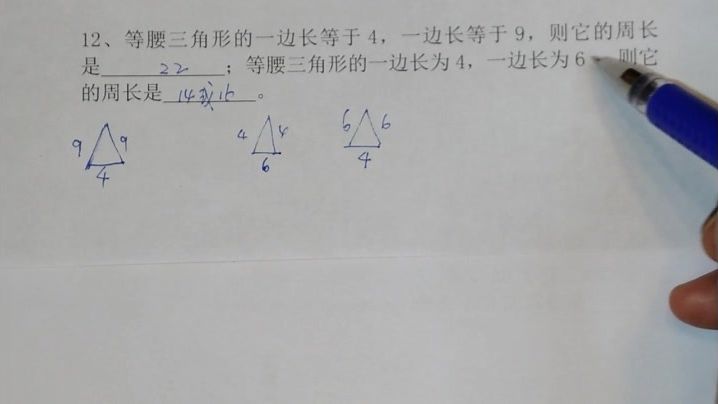 12、等腰三角形的一边长等于 4，一边长等于 9，则它的周长
是 22 ；等腰三角形的一边长为 4，一边长为 6 则它
的周长是 14或16 。
9 9 4 4 6 6
4 6 4